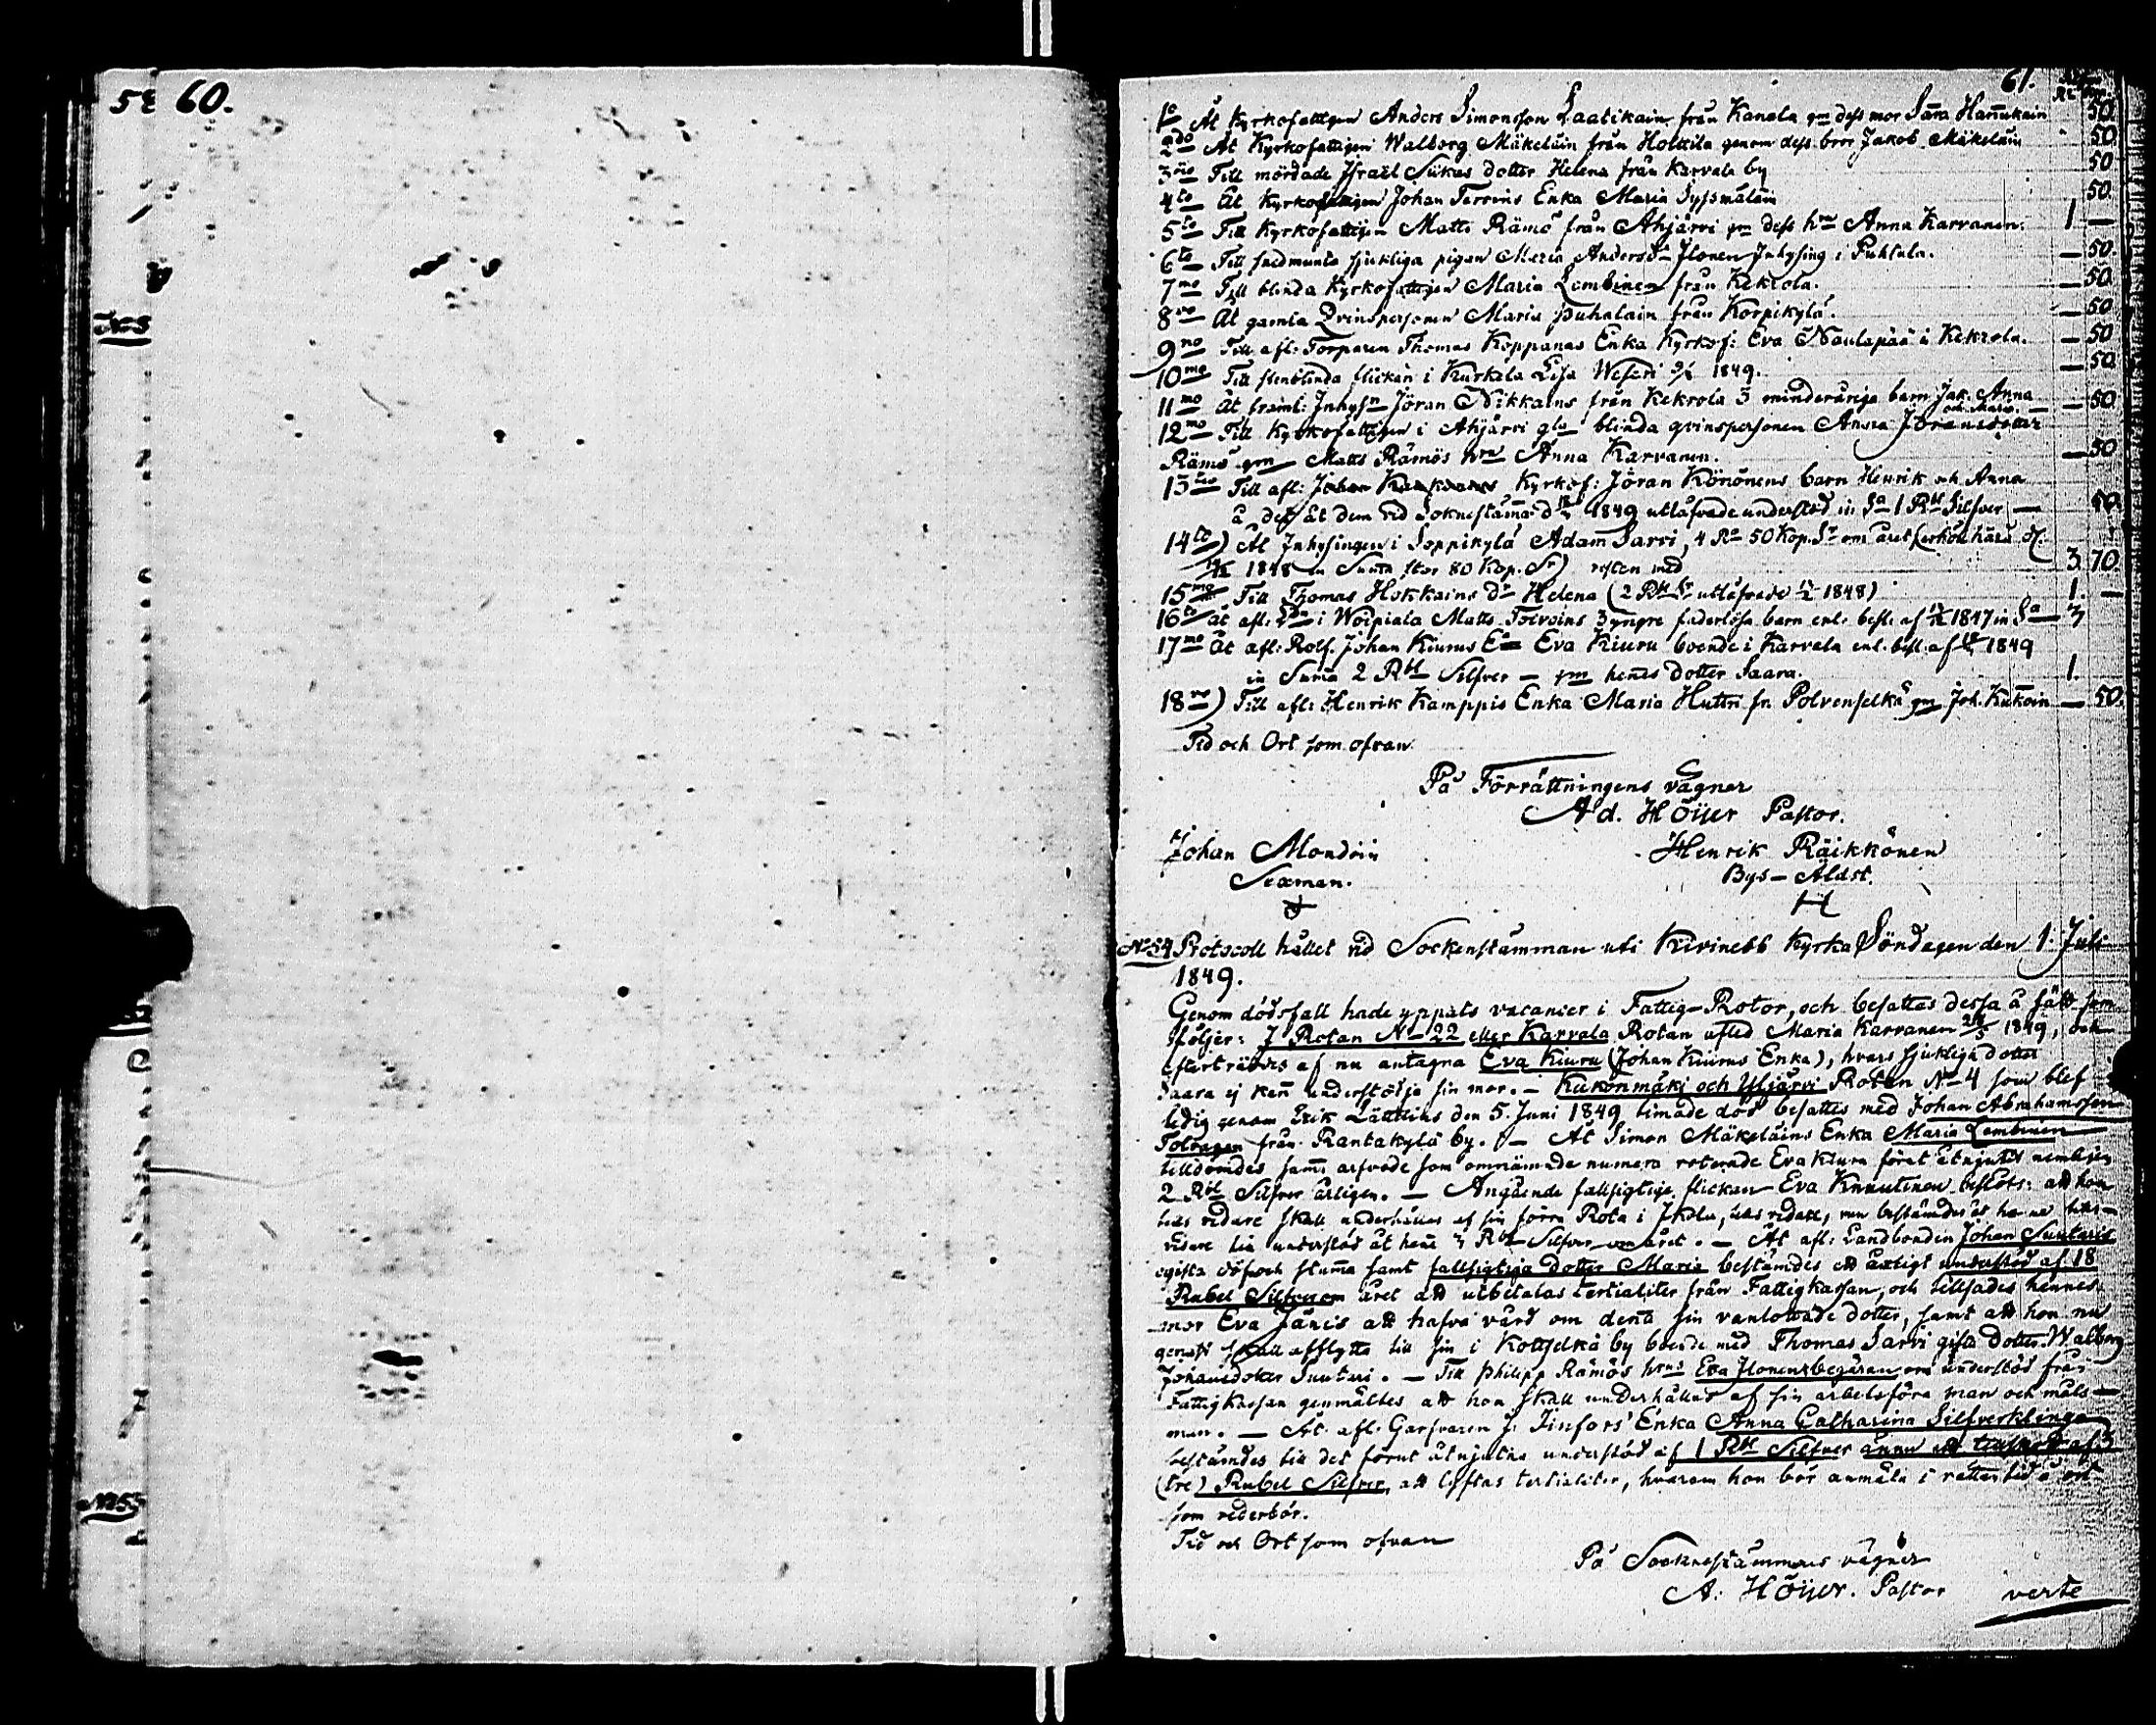 60.
61.
1o Åt Kyrkofattigen Anders Simonsson Laatikain från Kanala gm dess mor Sara Hanukain 50
2do Åt Kyrkofattigen Walborg Mäkeläin från Holttila genom dess bror Jakob Mäkeläin 50
3tio Till mördade Israël Sükas dotter Helena från Karvala by 50
4to Åt Kyrkofattigen Johan Tervins Enka Maria Syssmäläin 50
5to Till Kyrkofattigen Matts Rämö från Ahjärvi gm dess hru Anna Karvanen. 1 —
6to Till sjukliga pigan Maria Andersd. Ilonen Inhysing i Puhtula. — 50
7mo Till blinda Kyrkofattigen Maria Lembinen från Kekrola. — 50
8vo Åt gamla Qvinspersonen Maria Puhalain från Korpikylä. — 50
9no Till afl: Torparen Thomas Koppanas Enka Kyrkof: Eva Naulapää i Kekrola. — 50
10mo Till stenblinda flickan i Kurkela Lisa Weseri 1849. — 50
11mo Åt framl: Inhysn Jöran Nikkains från Kekrola 3 minderåriga barn Jak. Anna och Maria — 50
12mo Till Kyrkofattigen i Ahjärvi gla blinda qvinspersonen Anna Jöransdotter
Rämö gm Matts Rämös hru Anna Karvanen. — 50
13tio Till afl: Kyrkof: Jöran Könönens barn Henrik och Anna
å det åt dem vid Soknestämma d 1849 utlåfvade understöd in Sa 1 Rbl Silfver — 50
14to) Åt Inhysingen i Soppikylä Adam Sarvi, 4 Ro 50 Kop. Sr om året
1848 en Suma stor 80 Kop. Sr) resten med 3 70
15mo Till Thomas Hokkains dr Helena (2 Rbl Sr utlåfvade 1848) 1. —
16to åt afl: i Woipiala Matts Tolvoins 3 yngre faderlösa barn enl. besl. af 1847 in Sa 3
17mo Åt afl: Rotf. Johan Kiurus Ea Eva Kiuru boende i Karvala enl. besl. af 1849
in Suma 2 Rbl Silfver — gm henes dotter Saara. 1.
18vo) Till afl: Henrik Kamppis Enka Maria Huttri fr. Polvenselkä gm Joh. Kukoin — 50.
Tid och Ort som ofvan.
På Förrättningens vägnar
Ad. Höijer Pastor.
Johan Mondoin Henrik Räikkönen
Sexman. Bys-Åldst.
No 54 Protocoll hållet vid Sockenstämman uti Kivinebb Kyrka Söndagen den 1. Juli
1849.
Genom dödsfall hade yppats vacancer i Fattig-Rotor, och besattas dessa å sätt som
följer: I Rotan No 22 eller Karvala Rotan afled Maria Karvanen 1849, och
efterträddes af nu antagna Eva Kiuru (Johan Kiurus Enka), hvars sjukliga dotter
Saara ej kan understödja sin mor. — Kukonmäki och Ylijärvi Rotan No 4 som blef
ledig genom Erik Lättiins den 5. Juni 1849 timade död besattes med Johan Abrahamsson
Tolvanen från Rantakylä by. — Åt Simon Mäkeläins Enka Maria Lembinen
tilldömdes sama arfvode som omnämnde numera roterade Eva Kiuru förut åtnjutit nemligen
2 Rbl Silfver årligen. — Angående fallsigtige flickan Eva Knuutinen beslöts: att hon
tills vidare skall underhållas af sin förra Rota i Ikola,
vidare till understöd åt hene 3 Rbl Silfver om året. — Åt afl: Landbonden Johan Suutaris
ogifta döf och stuma samt fallsigtiga dotter Maria bestämdes ett årligt understöd af 18
Rubel Silfver om året att utbetalas tertialiter från Fattigkassan, och tillsades hennes
mor Eva Jänis att hafva vård om dena sin vanlottade dotter, samt att hon nu
genast skall afflytta till sin i Kottselkä by boende med Thomas Sarvi gifta dotter Walborg
Johansdotter Suutari. — Till Philipp Rämös hrus Eva Ilonens begäran om understöd från
Fattigkassan genmältes att hon skall underhållas af sin arbetsföra man och måls-
man. — Åt afl: Garfvaren J. Finfors' Enka Anna Catharina Silfverklinga
bestämdes till det förut åtnjutna understöd af 1 Rbl Silfver ännu ett af 3
(tre) Rubel Silfver, att lyftas tertialiter, hvarom hon bör anmäla i rättan tid å ort
som vederbör.
Tid och Ort som ofvan
På Socknestämmans vägnar
A. Höijer. Pastor verte
No 55